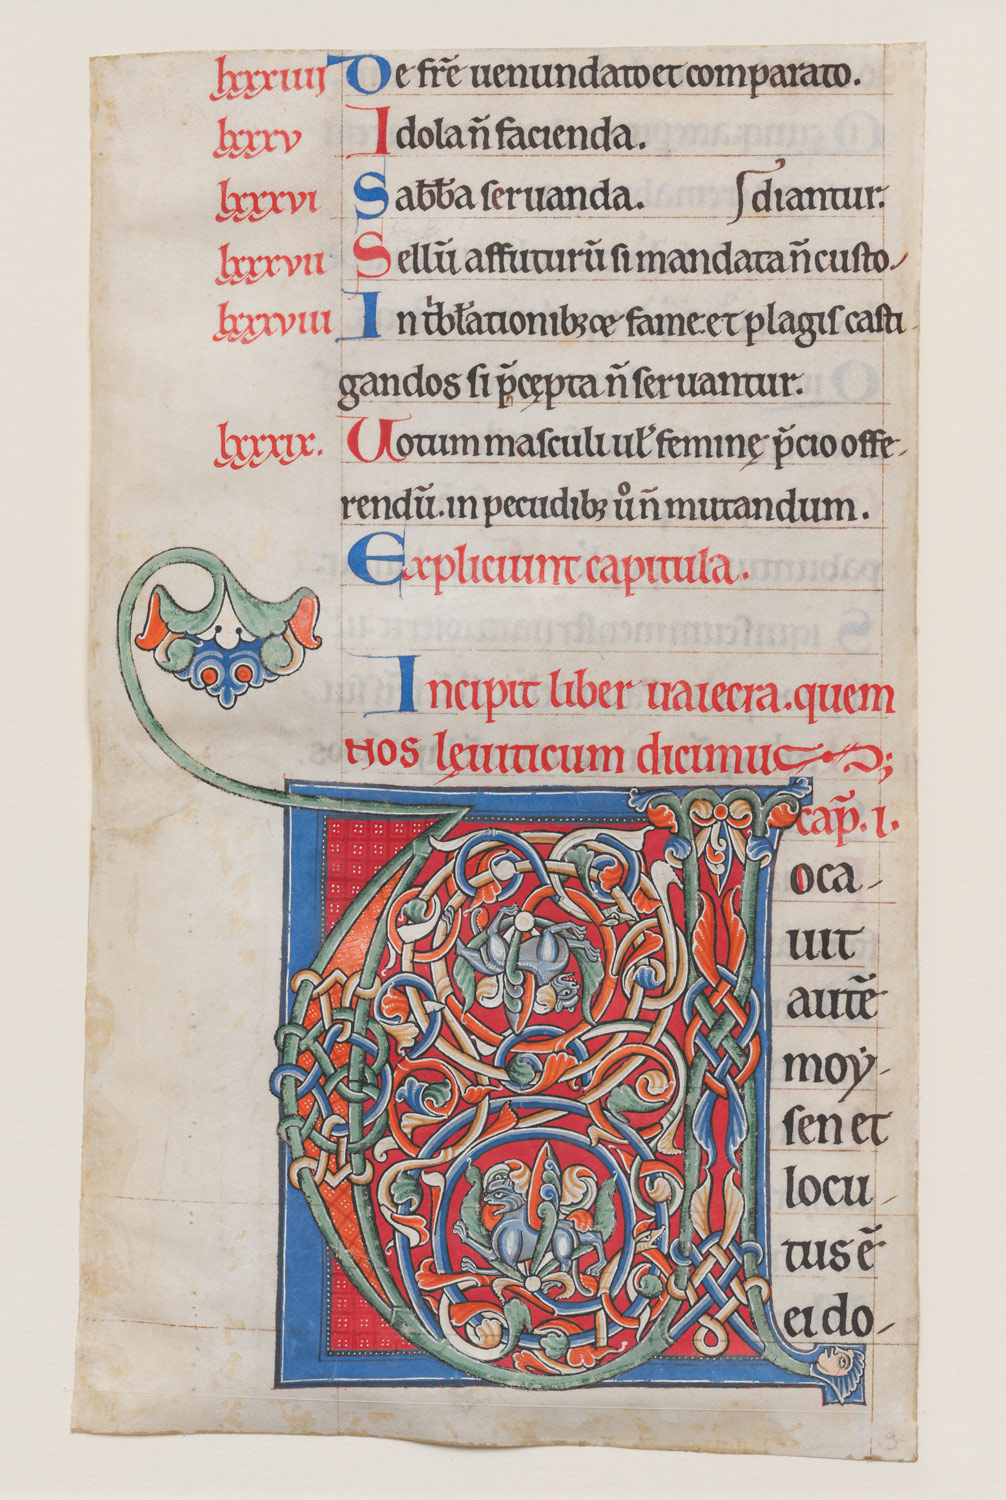 lxxxiiij De fr̄e uenundato et comparato.
lxxxv Idola n̄ facienda.
lxxxvi Sabƀa seruanda. diantur.
lxxxvii Sellū affuturū si mandata n̄ custo-
lxxxviii In tⁱbƚationibꝫ ⁊ fame et plagis casti-
gandos si p̄cępta n̄ seruantur.
lxxxix. Uotum masculi uƚ feminę p̄cio offe-
rendū. in pecudibꝫ uͦ n̄ mutandum.
Expliciunt capitula.
Incipit liber uaiecra. quem
nos lęuiticum dicimus;
cap̄. i.
Voca-
uit
autē
moẏ-
sen et
locu-
tus ē
ei do-